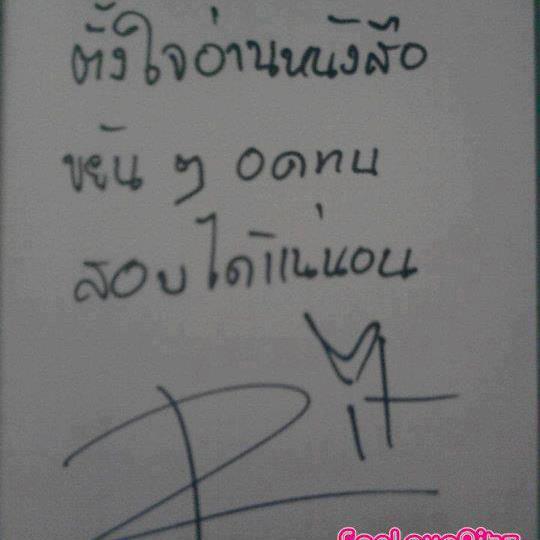 ตั้งใจอ่านหนังสือ
ขยัน ๆ อดทน
สอบได้แน่นอน